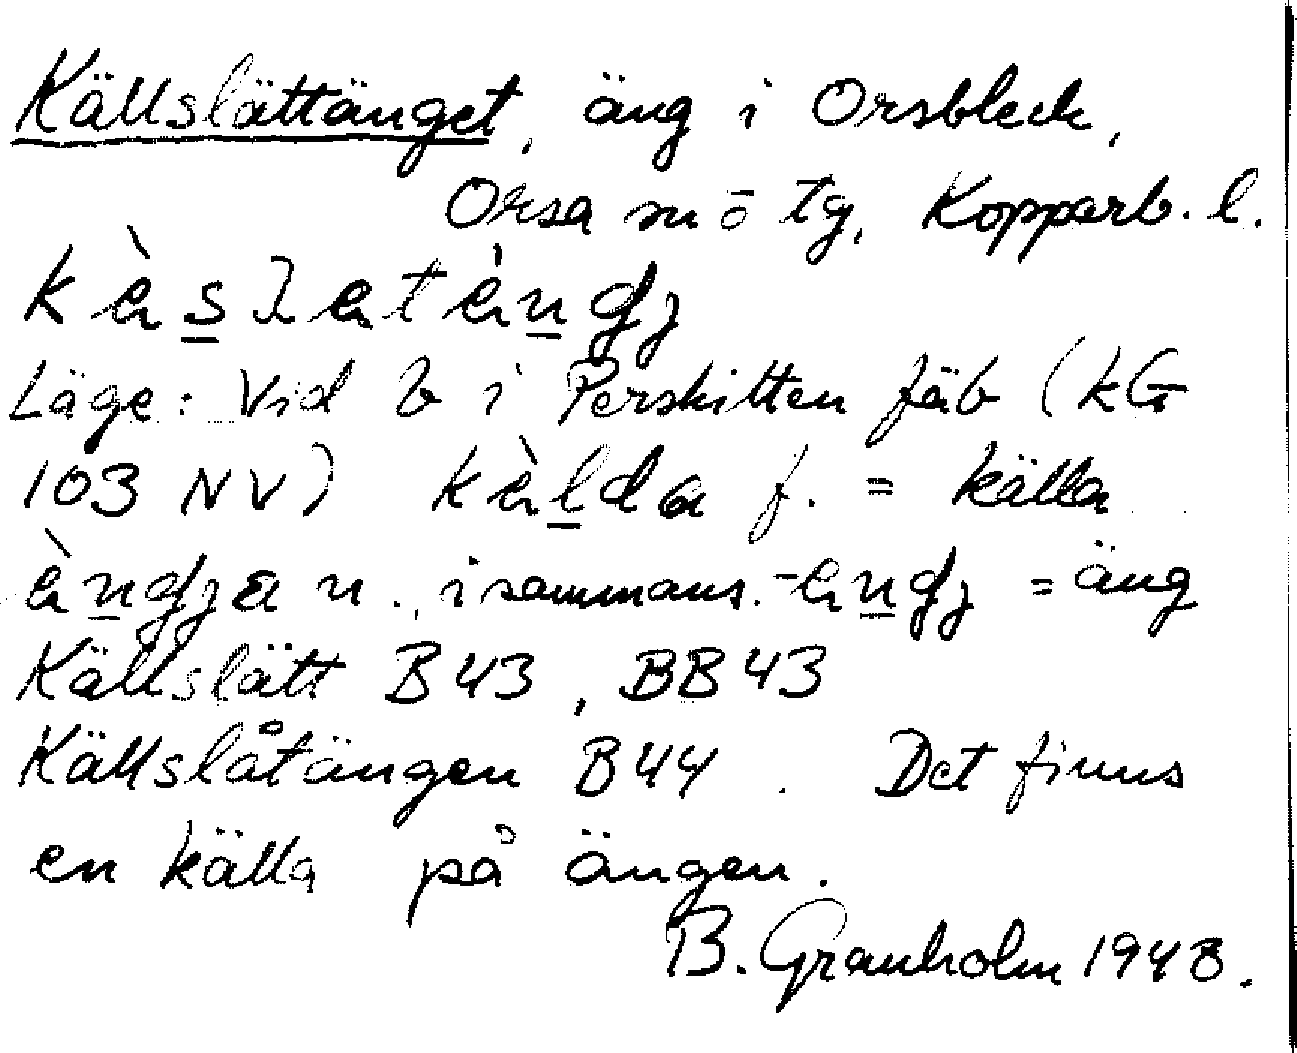 Källslättänget, äng i Orsbleck,
Orsa sn ö tg, Kopparb. l.
Läge: Vid b i Perskitten fäb (kG
103 NV) kèlda f. = källa
n., i sammans. = äng
Källslätt B43, BB43
Källslåtängen B44. Det finns
en källa på ängen.
B. Granholm 1948.